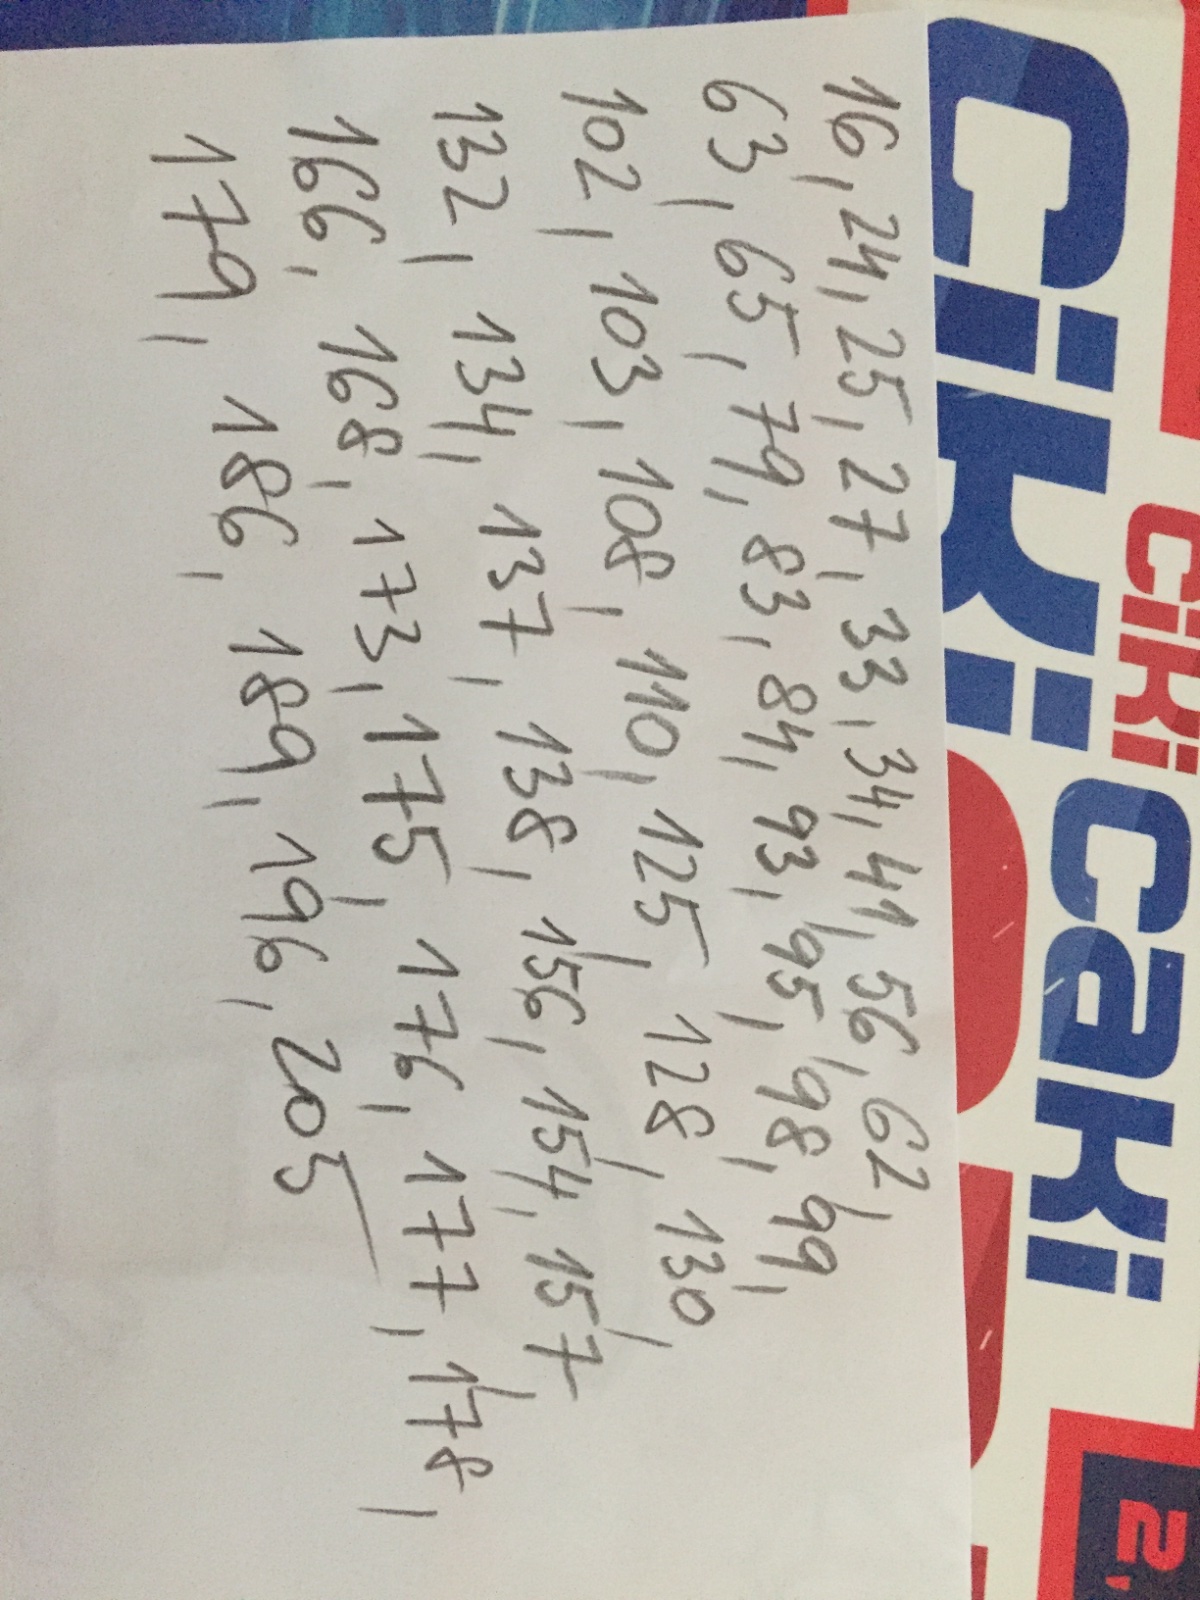 CiKi
CiKi caKi
2,
16, 24, 25, 27, 33, 34, 41, 56, 62,
63, 65, 79, 83, 84, 93, 95, 98, 99,
102, 103, 108, 110, 125, 128, 130,
132, 134, 137, 138, 156, 154, 157
166, 168, 173, 175, 176, 177, 178,
179, 186, 189, 196, 205